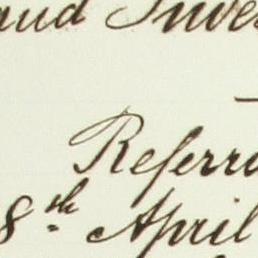 and Inves
Referra
8th April